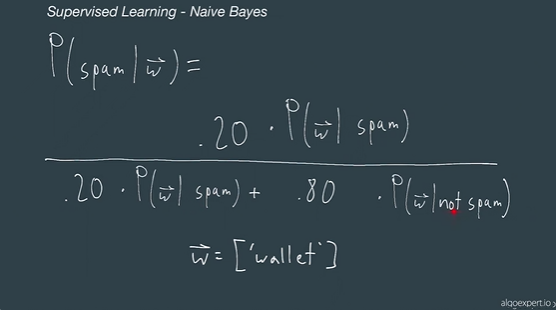 Supervised Learning - Naive Bayes
P(spam | w⃗) =
.20 · P(w⃗ | spam)
.20 · P(w⃗ | spam) + .80 · P(w⃗ | not spam)
w⃗ = ['wallet']
algoexpert.io